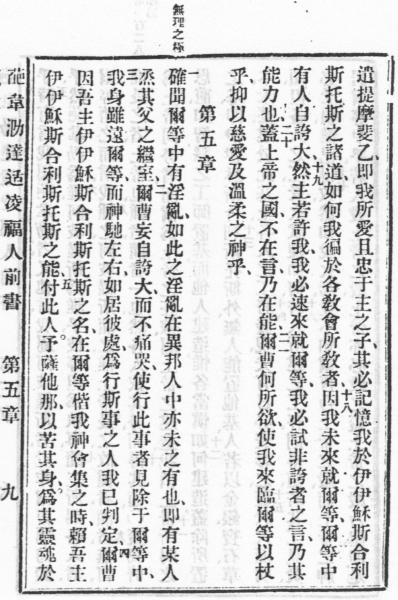 無理之極
遣提摩斐乙、即我所愛且忠于主之子、其必記憶我於伊伊穌斯合利
斯托斯之諸道、如何我徧於各敎會所敎者、十八因我未來就爾等、爾等中
有人自誇大、十九然主若許我、我必速來就爾等、我必試非誇者之言、乃其
能力也、二十蓋上帝之國不在言、乃在能、二一爾曹何所欲、使我來臨爾等以杖
乎、抑以慈愛及溫柔之神乎、
第五章
一確聞爾等中有淫亂、如此之淫亂、在異邦人中亦未之有也、即有某人
烝其父之繼室、二爾曹妄自誇大而不痛哭、使行此事者見除于爾等中、
三我身雖遠爾等、而神馳左右、如居彼處、爲行斯事之人、我已判定、四爾曹
因吾主伊伊穌斯合利斯托斯之名、在爾等偕我神會集之時、賴吾主
伊伊穌斯合利斯托斯之能、五付此人予薩他那、以苦其身、爲其靈魂於
葩韋泐達适凌福人前書 第五章 九